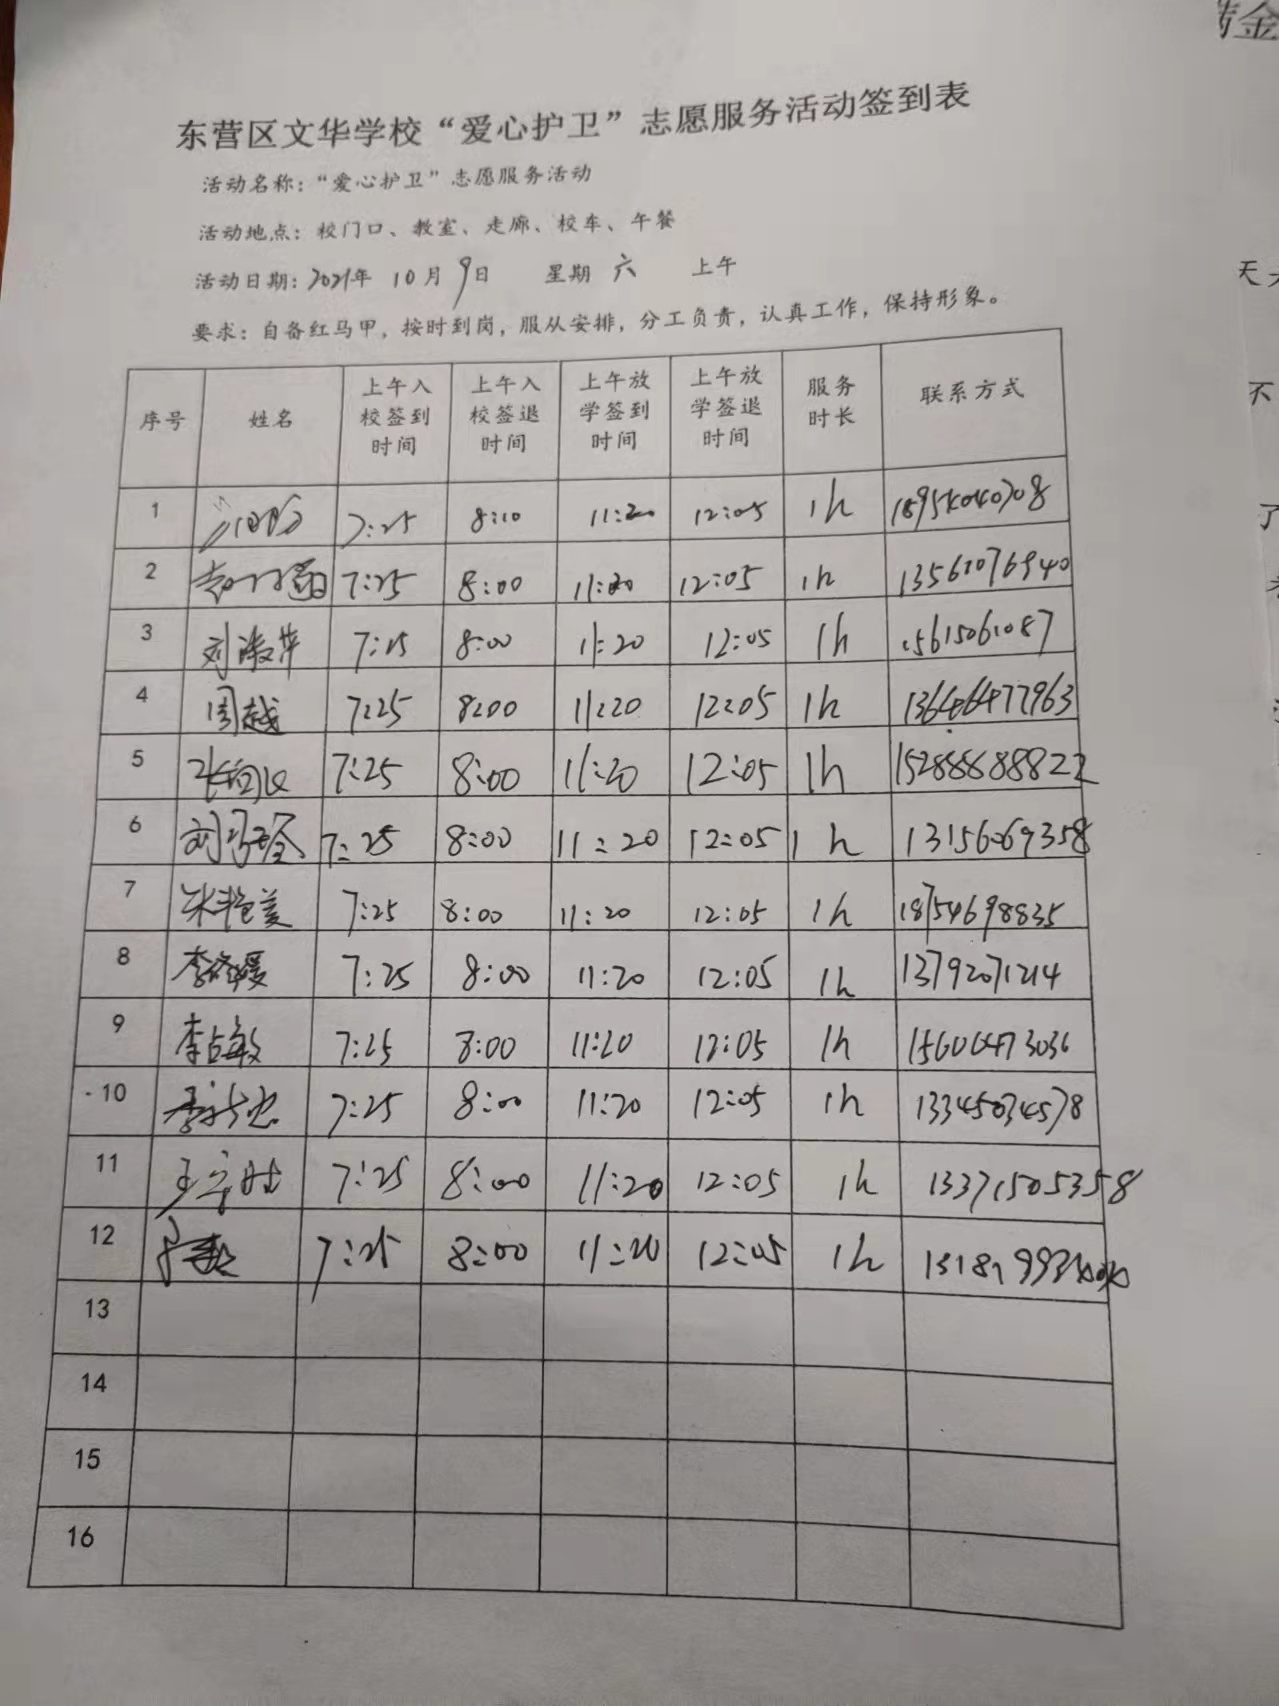 东营区文华学校“爱心护卫”志愿服务活动签到表
活动名称：“爱心护卫”志愿服务活动
活动地点：校门口、教室、走廊、校车、午餐
活动日期：2021年 10月 9日 星期 六 上午
要求：自备红马甲，按时到岗，服从安排，分工负责，认真工作，保持形象。
序号 姓名 上午入校签到时间 上午入校签退时间 上午放学签到时间 上午放学签退时间 服务时长 联系方式
1 7:25 8:10 11:20 12:05 1h 18954040708
2 7:25 8:00 11:20 12:05 1h 13561076940
3 刘淑萍 7:25 8:00 11:20 12:05 1h 15615061087
4 周越 7:25 8:00 11:20 12:05 1h 13646477963
5 7:25 8:00 11:20 12:05 1h 15288688822
6 7:25 8:00 11:20 12:05 1h 13156069358
7 朱艳美 7:25 8:00 11:20 12:05 1h 18754698835
8 7:25 8:00 11:20 12:05 1h 13792071214
9 李占敏 7:25 8:00 11:20 12:05 1h 15606473036
10 7:25 8:00 11:20 12:05 1h 13345034578
11 7:25 8:00 11:20 12:05 1h 13371505358
12 7:25 8:00 11:20 12:05 1h
13
14
15
16
金
天
不
了